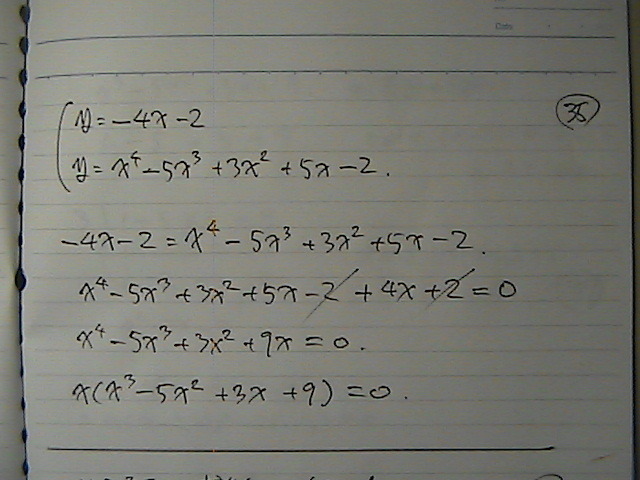 Date
35
y = -4x - 2
y = x⁴ - 5x³ + 3x² + 5x - 2.
-4x - 2 = x⁴ - 5x³ + 3x² + 5x - 2.
x⁴ - 5x³ + 3x² + 5x - 2 + 4x + 2 = 0
x⁴ - 5x³ + 3x² + 9x = 0.
x(x³ - 5x² + 3x + 9) = 0.